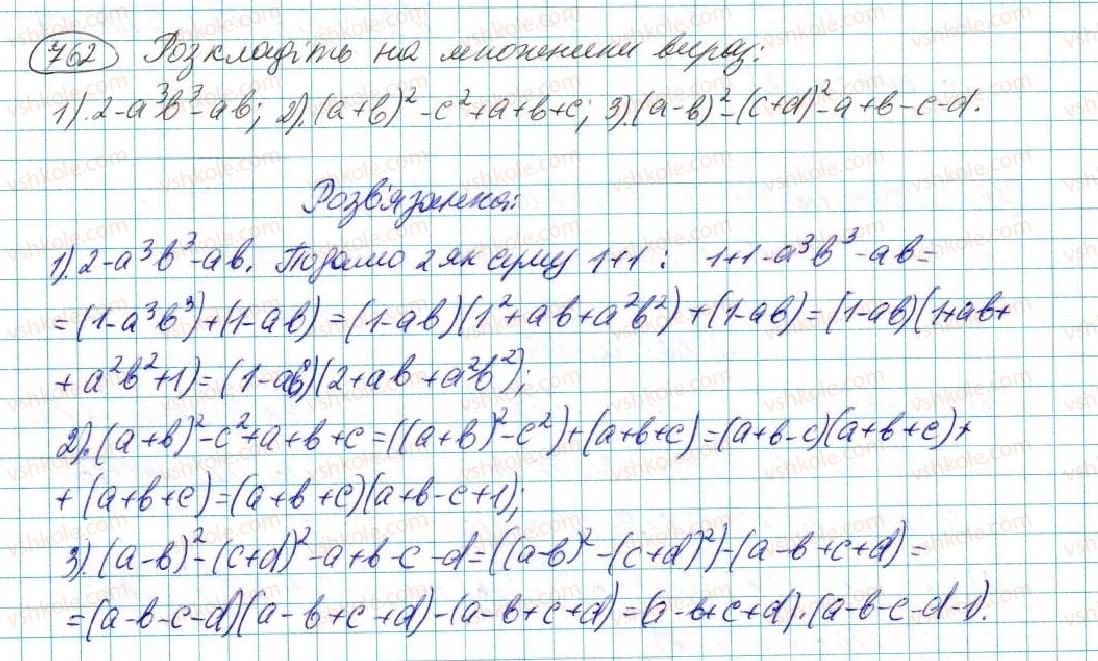 762 Розкладіть на множники вираз:
1). 2-a³b³-ab; 2). (a+b)²-c²+a+b+c; 3). (a-b)²-(c+d)²-a+b-c-d.
Розв'язання:
1). 2-a³b³-ab. Подамо 2 як суму 1+1: 1+1-a³b³-ab=
=(1-a³b³)+(1-ab)=(1-ab)(1²+ab+a²b²)+(1-ab)=(1-ab)(1+ab+
+a²b²+1)=(1-ab)(2+ab+a²b²);
2). (a+b)²-c²+a+b+c=((a+b)²-c²)+(a+b+c)=(a+b-c)(a+b+c)+
+(a+b+c)=(a+b+c)(a+b-c+1);
3). (a-b)²-(c+d)²-a+b-c-d=((a-b)²-(c+d)²)-(a-b+c+d)=
=(a-b-c-d)(a-b+c+d)-(a-b+c+d)=(a-b+c+d)·(a-b-c-d-1).